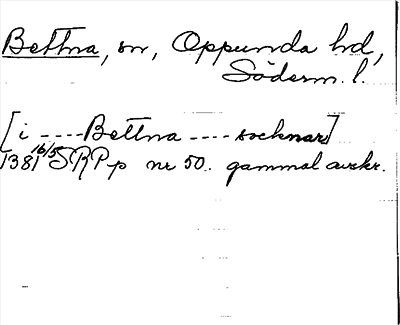 Bettna, sn, Oppunda hd,
Söderm. l.
[i ---- Bettna ---- socknar]
1381 16/5 SRPp nr 50. gammal avskr.